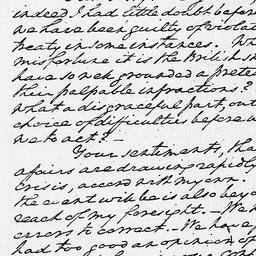 indeed I had little doubt before
we have been guilty of violat
treaty in some instances. Wh
misfortune it is the British sh
have so well grounded a prete
their palpable infractions?
what a disgraceful part, out
choice of difficulties before u
we to act? —
Your sentiments, tha
afairs are drawing rapidly
crisis, accord with my own.
the event will be is also beyo
reach of my foresight. — We h
errors to correct. — We have
had too good an opinion of